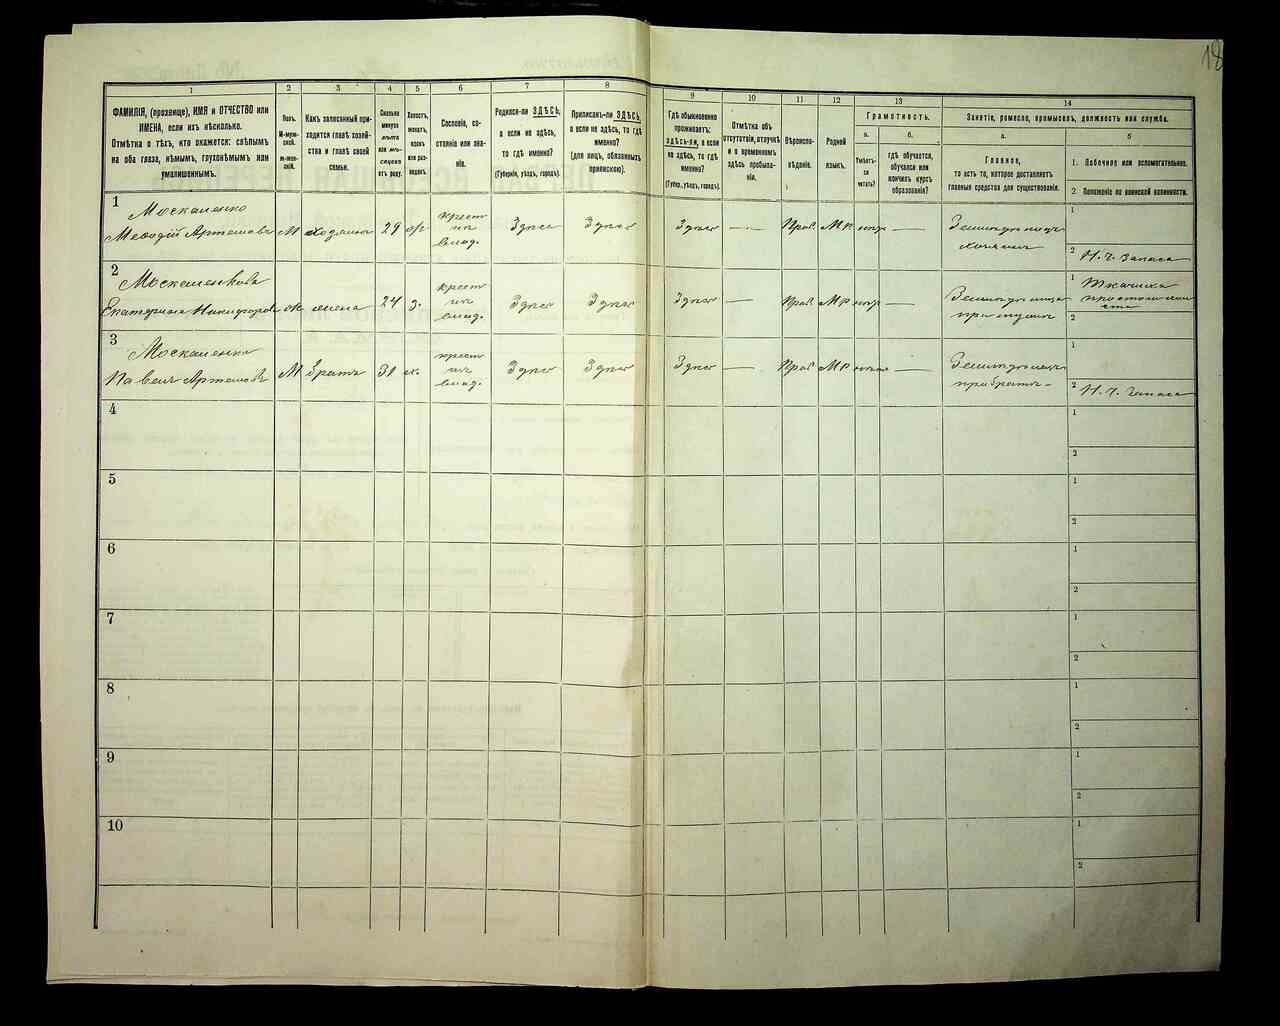 18
1 2 3 4 5 6 7 8 9 10 11 12 13 14
ФАМИЛІЯ, (прозвище), ИМЯ и ОТЧЕСТВО или
ИМЕНА, если ихъ нѣсколько.
Отмѣтка о тѣхъ, кто окажется: слѣпымъ
на оба глаза, нѣмымъ, глухонѣмымъ или
умалишеннымъ.
Полъ.
М-муж-
ской.
Ж-жен-
скій.
Какъ записанный при-
ходится главѣ хозяй-
ства и главѣ своей
семьи.
Сколько
минуло
лѣтъ
или мѣ-
сяцевъ
отъ роду.
Холостъ,
женатъ,
вдовъ
или раз-
веденъ.
Сословіе, со-
стояніе или зва-
ніе.
Родился-ли ЗДѢСЬ,
а если не здѣсь,
то гдѣ именно?
(Губернія, уѣздъ, городъ).
Приписанъ-ли ЗДѢСЬ,
а если не здѣсь, то гдѣ
именно?
(для лицъ, обязанныхъ
припискою).
Гдѣ обыкновенно
проживаетъ:
здѣсь-ли, а если
не здѣсь, то гдѣ
именно?
(Губ., уѣздъ, городъ).
Отмѣтка объ
отсутствіи, отлучкѣ
и о временномъ
здѣсь пребыва-
ніи.
Вѣроиспо-
вѣданіе.
Родной
языкъ.
Грамотность.
а.
Умѣетъ-
ли
читать?
б.
гдѣ обучается,
обучался или
кончилъ курсъ
образованія?
Занятіе, ремесло, промыселъ, должность или служба.
а.
Главное,
то есть то, которое доставляетъ
главныя средства для существованія.
б
1. Побочное или вспомогательное.
2. Положеніе по воинской повинности.
1
Москаленко
Меѳодій Артемовъ М хозяинъ 29 крест
из
влад. Здесь Здесь Здесь — Прав М Р — Земледѣлецъ
хозяинъ
1
2 Н. ч. запаса
2
Москаленкова
Екатерина Никифоров Ж жена 24 з. крест
из
влад. Здесь Здесь Здесь — Прав М Р — Земледѣлица
при мужѣ
1 Ткачиха
2
3
Москаленко
Павелъ Артемовъ М Братъ 31 крест
из
влад. Здесь Здесь Здесь — Прав М Р — Земледѣлецъ
при братѣ
1
2 Н. ч. запаса
4
1
2
5
1
2
6
1
2
7
1
2
8
1
2
9
1
2
10
1
2